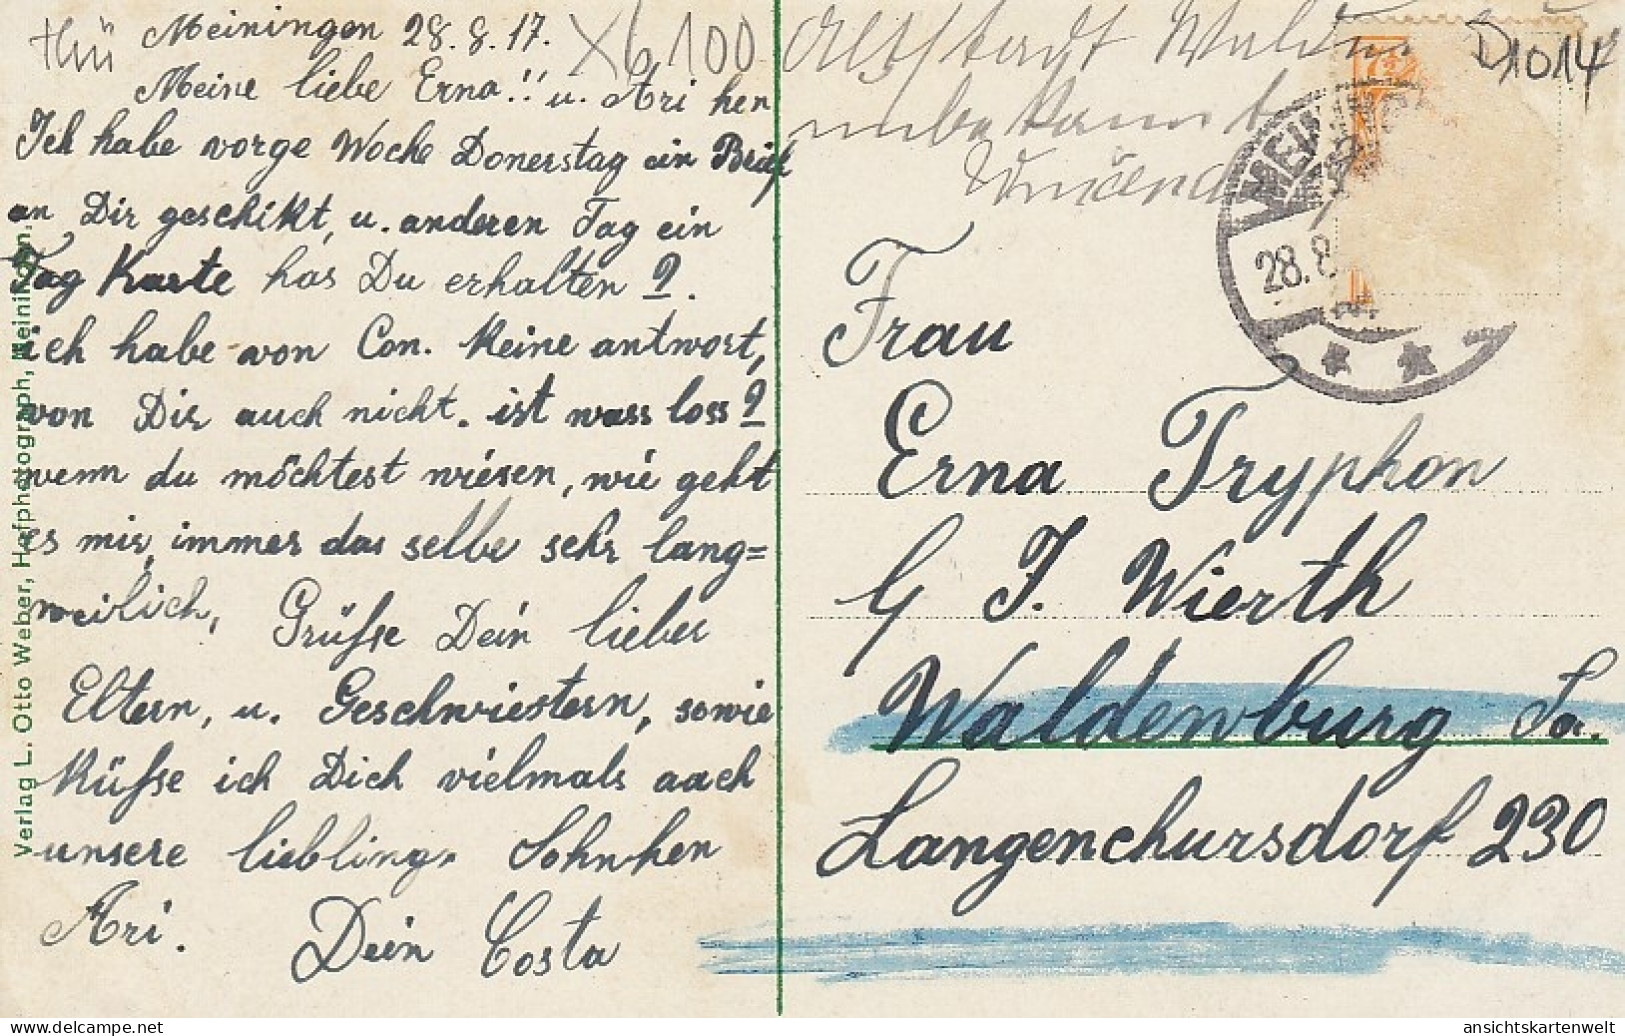 Thü
Meiningen 28.8.17.
X6100
Meine liebe Erna!! u. Ari hen
Ich habe vorge Woche Donerstag ein Brief
an Dir geschikt, u. anderen Tag ein
Tag Karte has Du erhalten?.
ich habe von Con. keine antwort,
von Dir auch nicht. ist wass loss?
wenn du möchtest wiesen, wie geht
es mir, immer das selbe sehr lang=
weilich, Grüsse Dein lieber
Eltern, u. Geschwiestern, sowie
küsse ich Dich vielmals aach
unsere liebling, Sohnhen
Ari. Dein Costa
Verlag L. Otto Weber, Hofphotograph, Meiningen.
Altstadt Waldenburg
unbekannt
D1014
7½
MEININGEN
28.8
Frau
Erna Tryphon
G J. Wierth
Waldenburg Sa.
Langenchursdorf 230
ansichtskartenwelt
www.delcampe.net